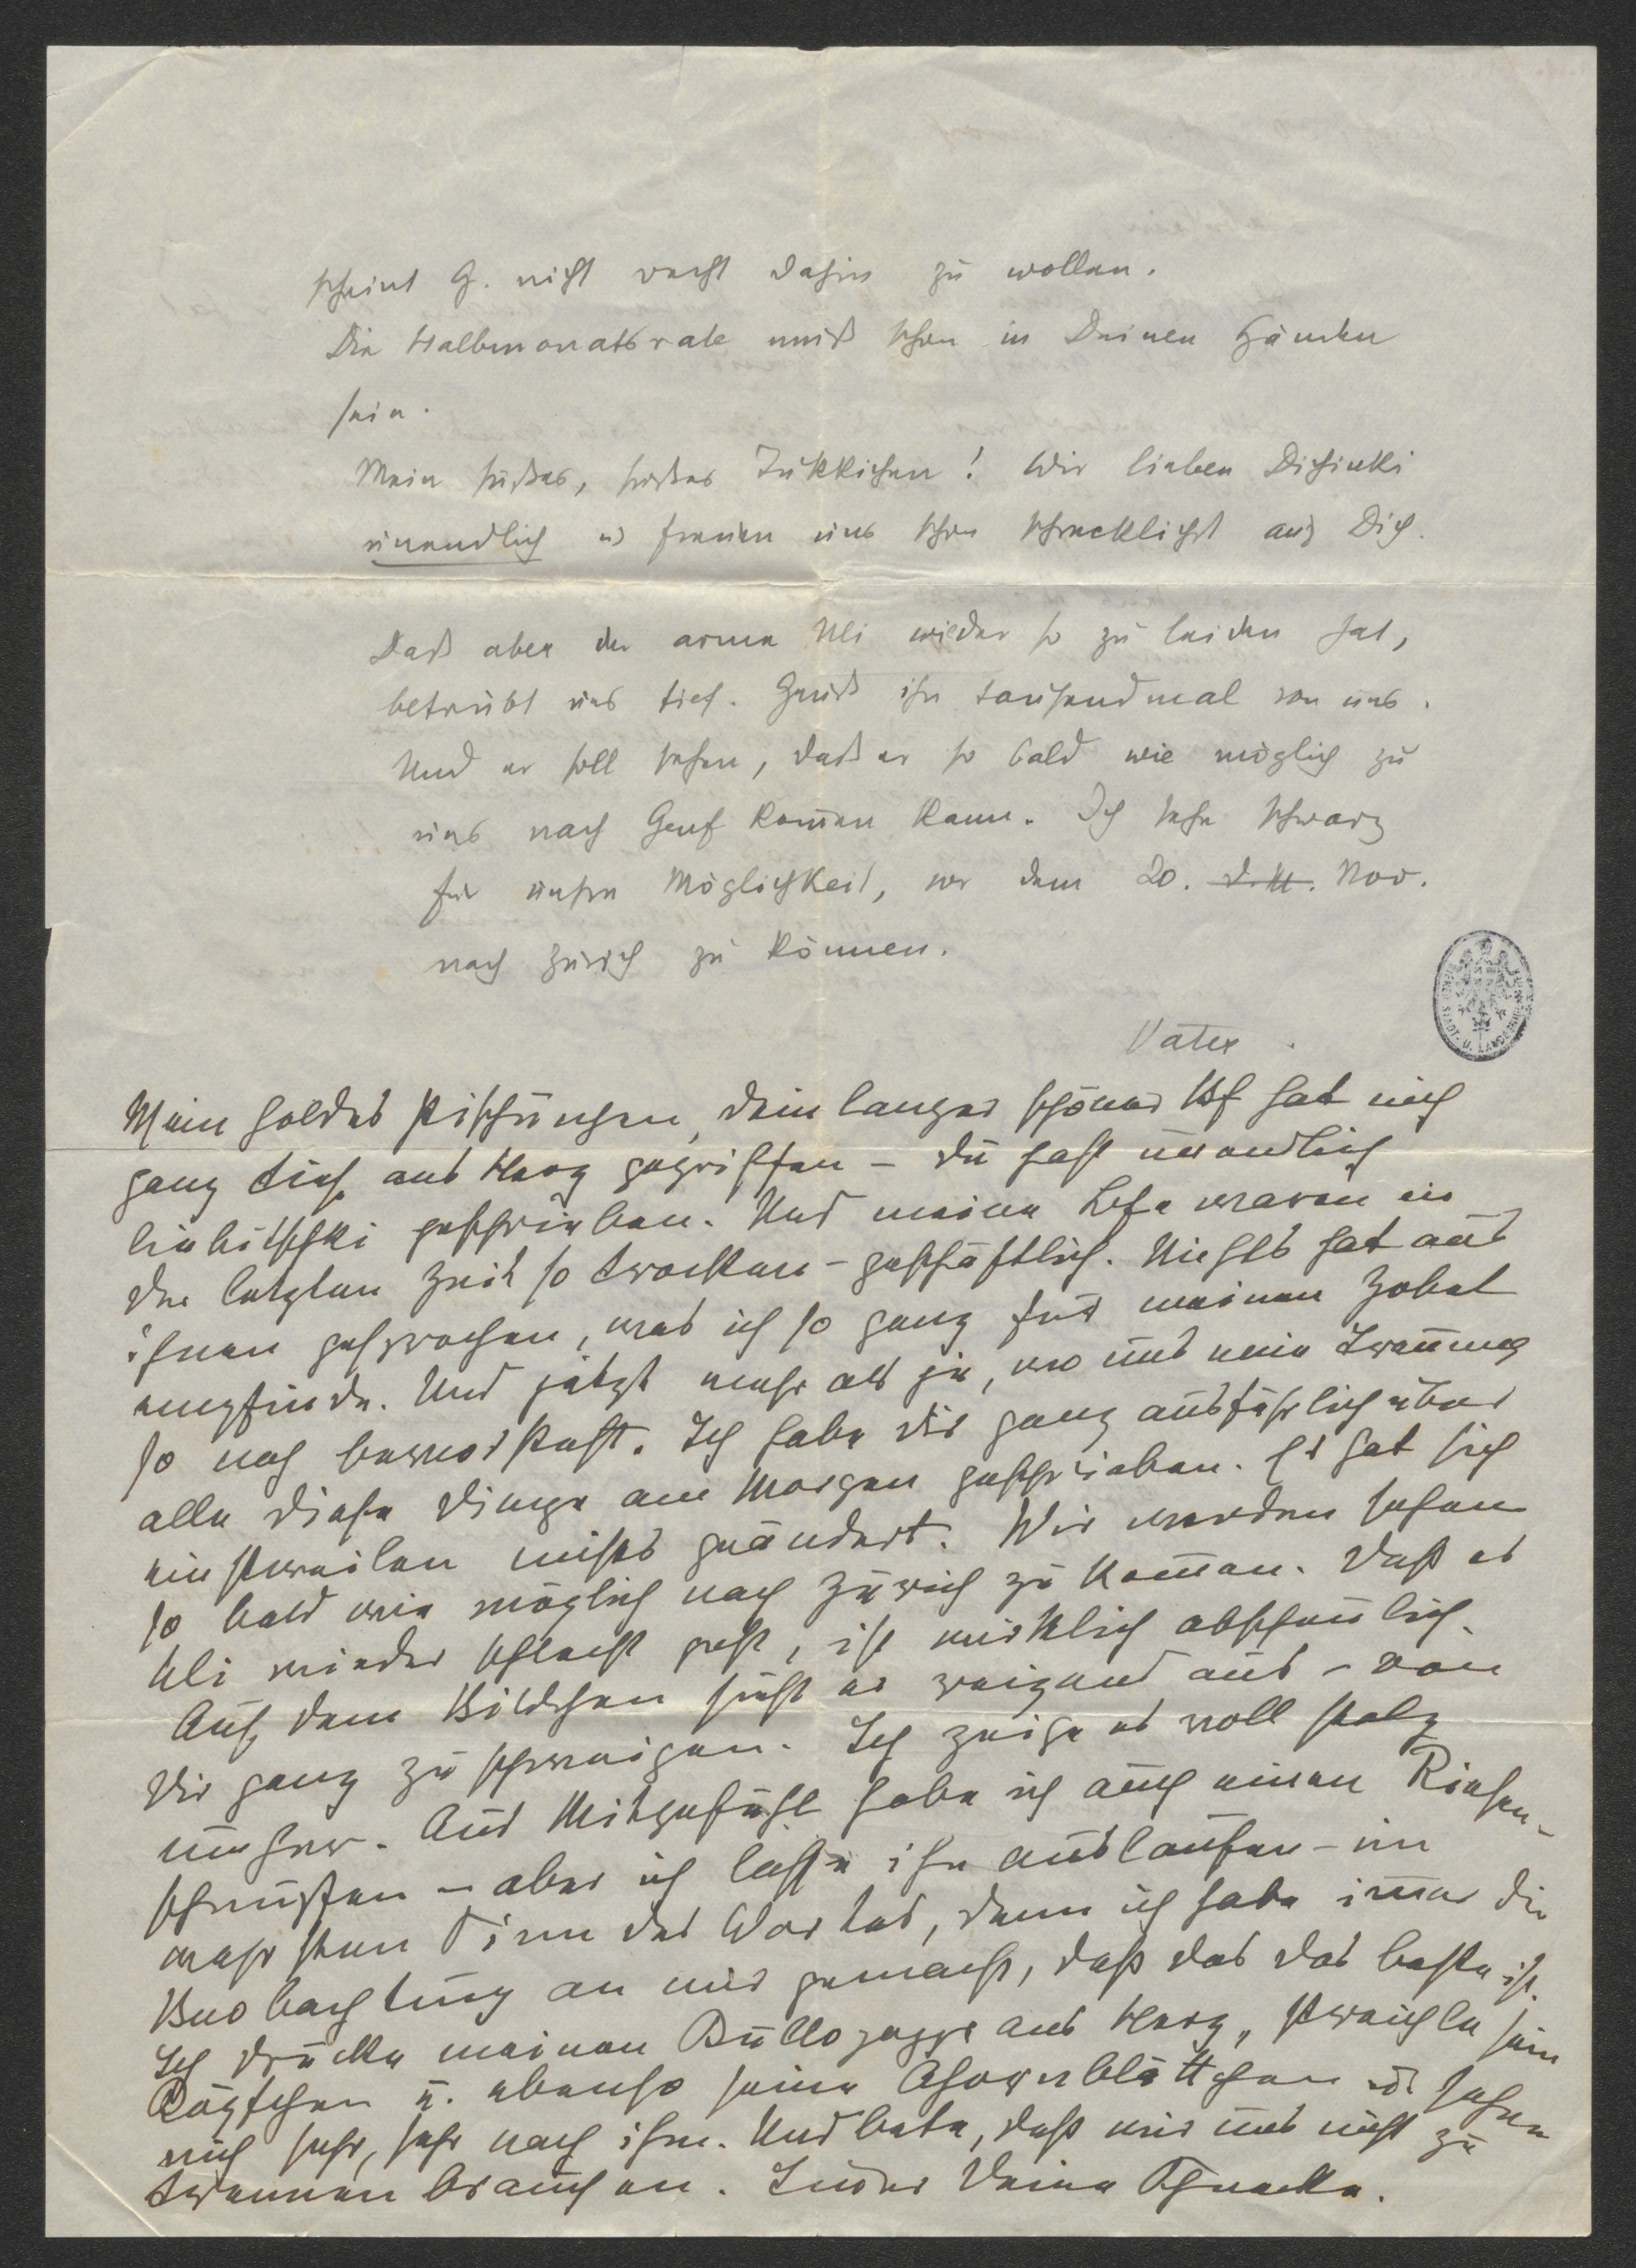 scheint G. nicht recht dahin zu wollen.
Die Halbmonatsrate muß schon in Deinen Händen
sein.
Mein süßes, süßes Zukkichen! Wir lieben Dichinki
unendlich u freuen uns schon schrecklichst auf Dich.
Daß aber der arme Uli wieder so zu leiden hat,
betrübt uns tief. Grüß ihn tausendmal von uns.
Und er soll sehen, daß er so bald wie möglich zu
uns nach Genf kom̄en kann. Ich sehe schwarz
für unsre Möglichkeit, vor dem 20. d. M. Nov.
nach Zürich zu können.
Vater.
Mein holdes, dein langer schöner Bf hat mich
ganz tief ans Herz gegriffen – du hast unendlich
liebitschki geschrieben. Und meine Bfe waren in
der letzten Zeit so trocken – geschäftlich. Nichts hat aus
ihnen gesprochen, was ich so ganz für meinen Zobel
empfinde. Und jetzt mehr als je, wo uns eine Tren̄ung
so nah bevorsteht. Ich habe dir ganz ausführlich über
alle diese Dinge am Morgen geschrieben. Es hat sich
einstweilen nichts geändert. Wir werden sehen
so bald wie möglich nach Zürich zu kom̄en. Daß es
Uli wieder schlecht geht, ist wirklich abscheulich.
Auf dem Bildchen sieht er reizend aus – von
dir ganz zu schweigen. Ich zeige es voll Stolz
umher. Aus Mitgefühl habe ich auch einen Riesen-
schnupfen – aber ich lasse ihn auslaufen – im
wahrsten Sinn des Wortes, denn ich habe im̄er die
Beobachtung an mir gemacht, daß das das beste ist.
Ich drücke meinen ans Herz, streichle sein
Köpfchen u. ebenso seine u sehne
mich sehr, sehr nach ihm. Und bete, daß wir uns nicht zu
trennen brauchen. Im̄er Deine